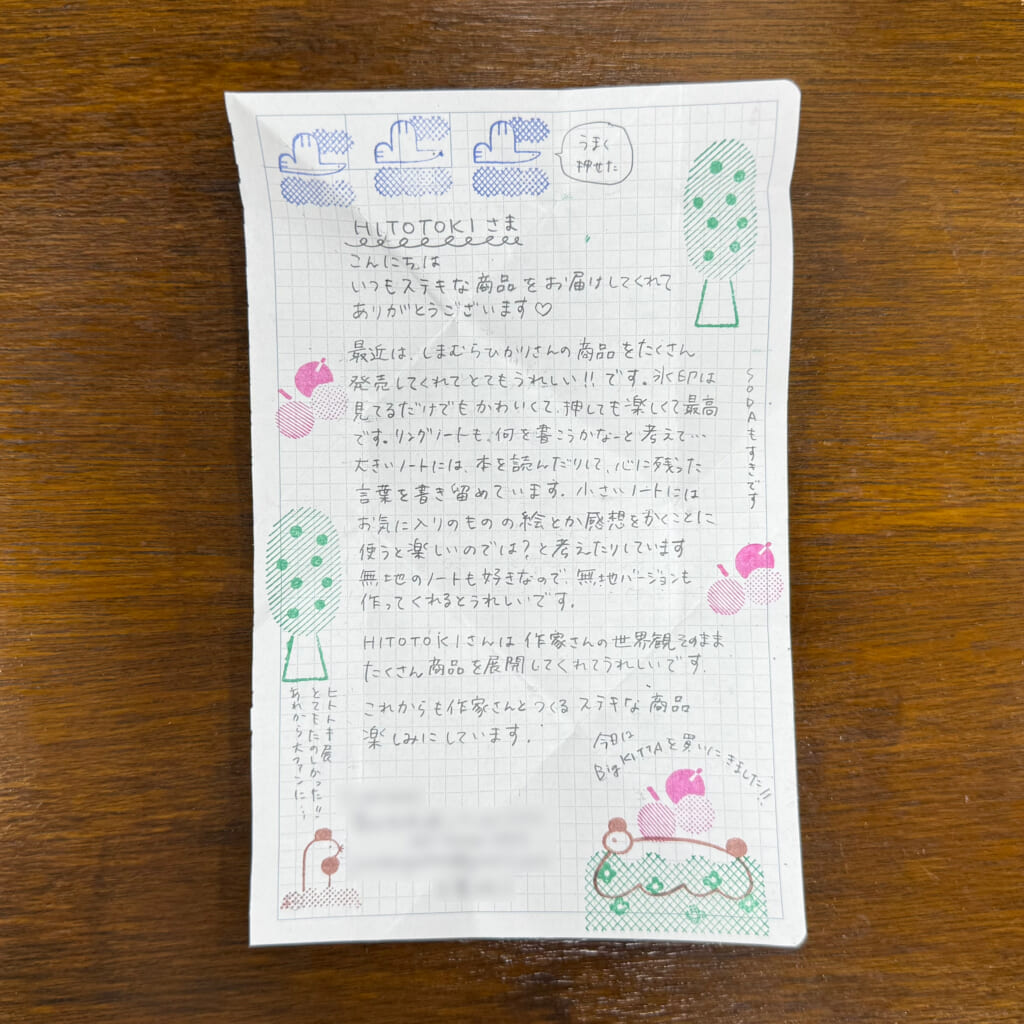 うまく
押せた
HITOTOKIさま
こんにちは
いつもステキな商品をお届けしてくれて
ありがとうございます♡
最近は、しまむらひかりさんの商品をたくさん
発売してくれてとてもうれしい!!です。氷印は
見てるだけでもかわいくて、押しても楽しくて最高
です。リングノートも、何を書こうかなーと考えて…
大きいノートには、本を読んだりして、心に残った
言葉を書き留めています。小さいノートには
お気に入りのものの絵とか感想をかくことに
使うと楽しいのでは?と考えたりしています
無地のノートも好きなので、無地バージョンも
作ってくれるとうれしいです。
HITOTOKIさんは作家さんの世界観そのまま
たくさん商品を展開してくれてうれしいです.
これからも作家さんとつくるステキな商品
楽しみにしています.
SODAもすきです
ヒトトキ展
とてもたのしかった!!
あれから大ファンに…
今日は
Big KITTAを買いにきました!!